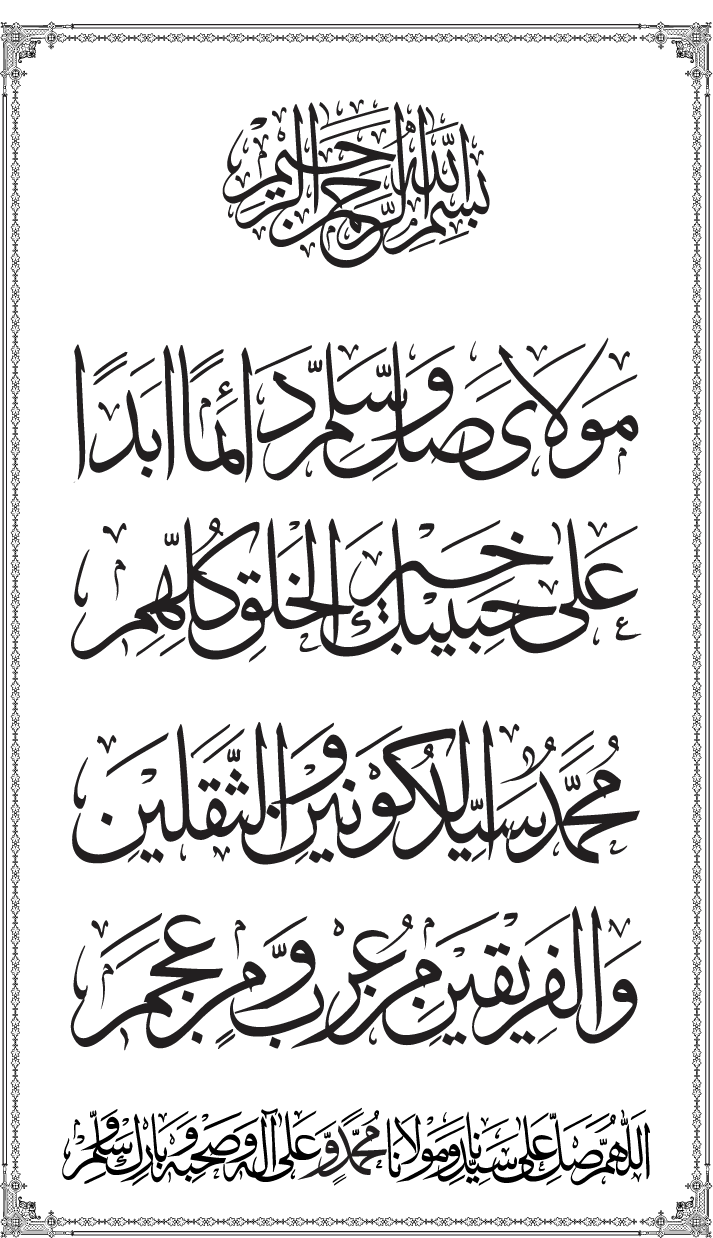 بِسْمِ اللهِ الرَّحْمٰنِ الرَّحِيْمِ
مَوْلَايَ صَلِّ وَسَلِّمْ دَائِمًا اَبَدًا
عَلٰى حَبِيْبِكَ خَيْرِ الْخَلْقِ كُلِّهِمِ
مُحَمَّدٌ سَيِّدُ الْكَوْنَيْنِ وَالثَّقَلَيْنِ
وَالْفَرِيْقَيْنِ مِنْ عُرْبٍ وَّمِنْ عَجَمِ
اَللّٰهُمَّ صَلِّ عَلٰى سَيِّدِنَا وَمَوْلَانَا مُحَمَّدٍ وَّعَلٰى آلِهٖ وَصَحْبِهٖ وَبَارِكْ وَسَلِّمْ